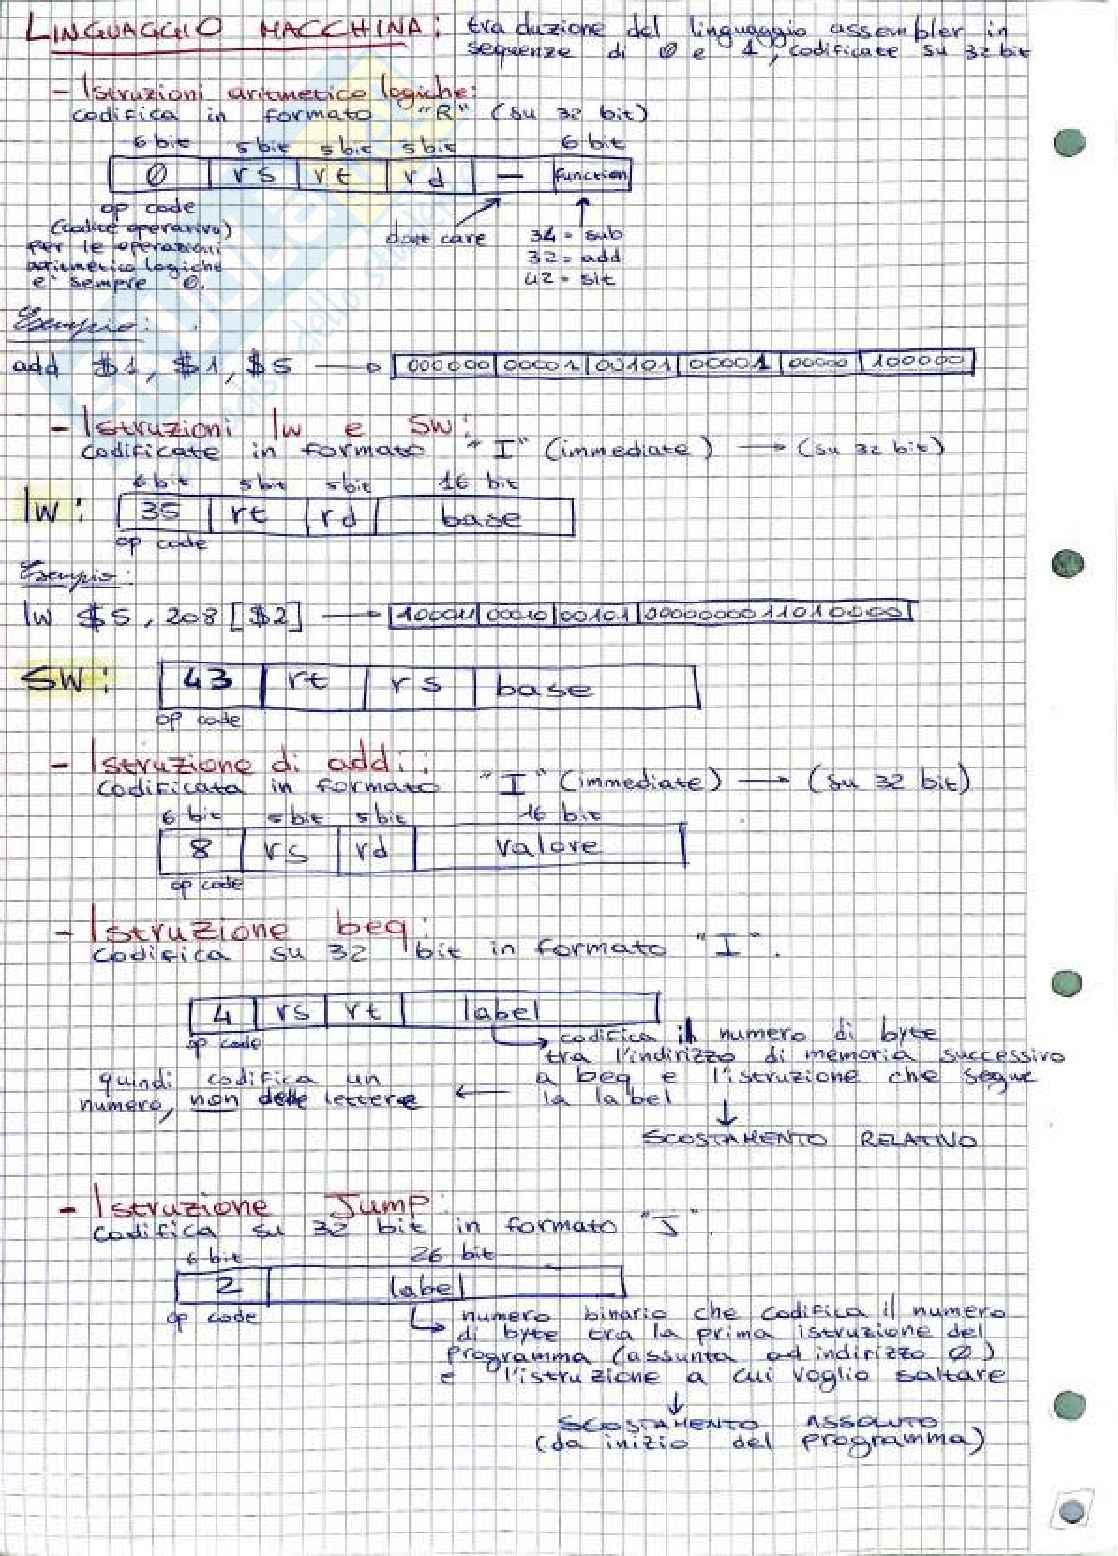 LINGUAGGIO MACCHINA: traduzione del linguaggio assembler in
sequenze di 0 e 1, codificate su 32 bit
- Istruzioni aritmetico logiche:
codifica in formato "R" (su 32 bit)
6 bit 5 bit 5 bit 5 bit 6 bit
0 rs rt rd — function
op code
(codice operativo)
per le operazioni
aritmetico logiche
e' sempre 0.
don't care
34 = sub
32 = add
42 = slt
Esempio:
add $1, $1, $5 → 000000 00001 00101 00001 00000 100000
- Istruzioni lw e sw:
codificate in formato "I" (immediate) → (su 32 bit)
6 bit 5 bit 5 bit 16 bit
lw: 35 rt rd base
op code
Esempio:
lw $5, 208 [$2] → 100011 00010 00101 0000000011010000
sw: 43 rt rs base
op code
- Istruzione di addi:
codificata in formato "I" (immediate) → (su 32 bit)
6 bit 5 bit 5 bit 16 bit
8 rs rd valore
op code
- Istruzione beq:
codifica su 32 bit in formato "I".
4 rs rt label
op code
codifica il numero di byte
tra l'indirizzo di memoria successivo
a beq e l'istruzione che segue
la label
quindi codifica un
numero, non delle lettere
SCOSTAMENTO RELATIVO
- Istruzione Jump:
codifica su 32 bit in formato "J".
6 bit 26 bit
2 label
op code
numero binario che codifica il numero
di byte tra la prima istruzione del
programma (assunta ad indirizzo 0)
e l'istruzione a cui voglio saltare
SCOSTAMENTO ASSOLUTO
(da inizio del programma)